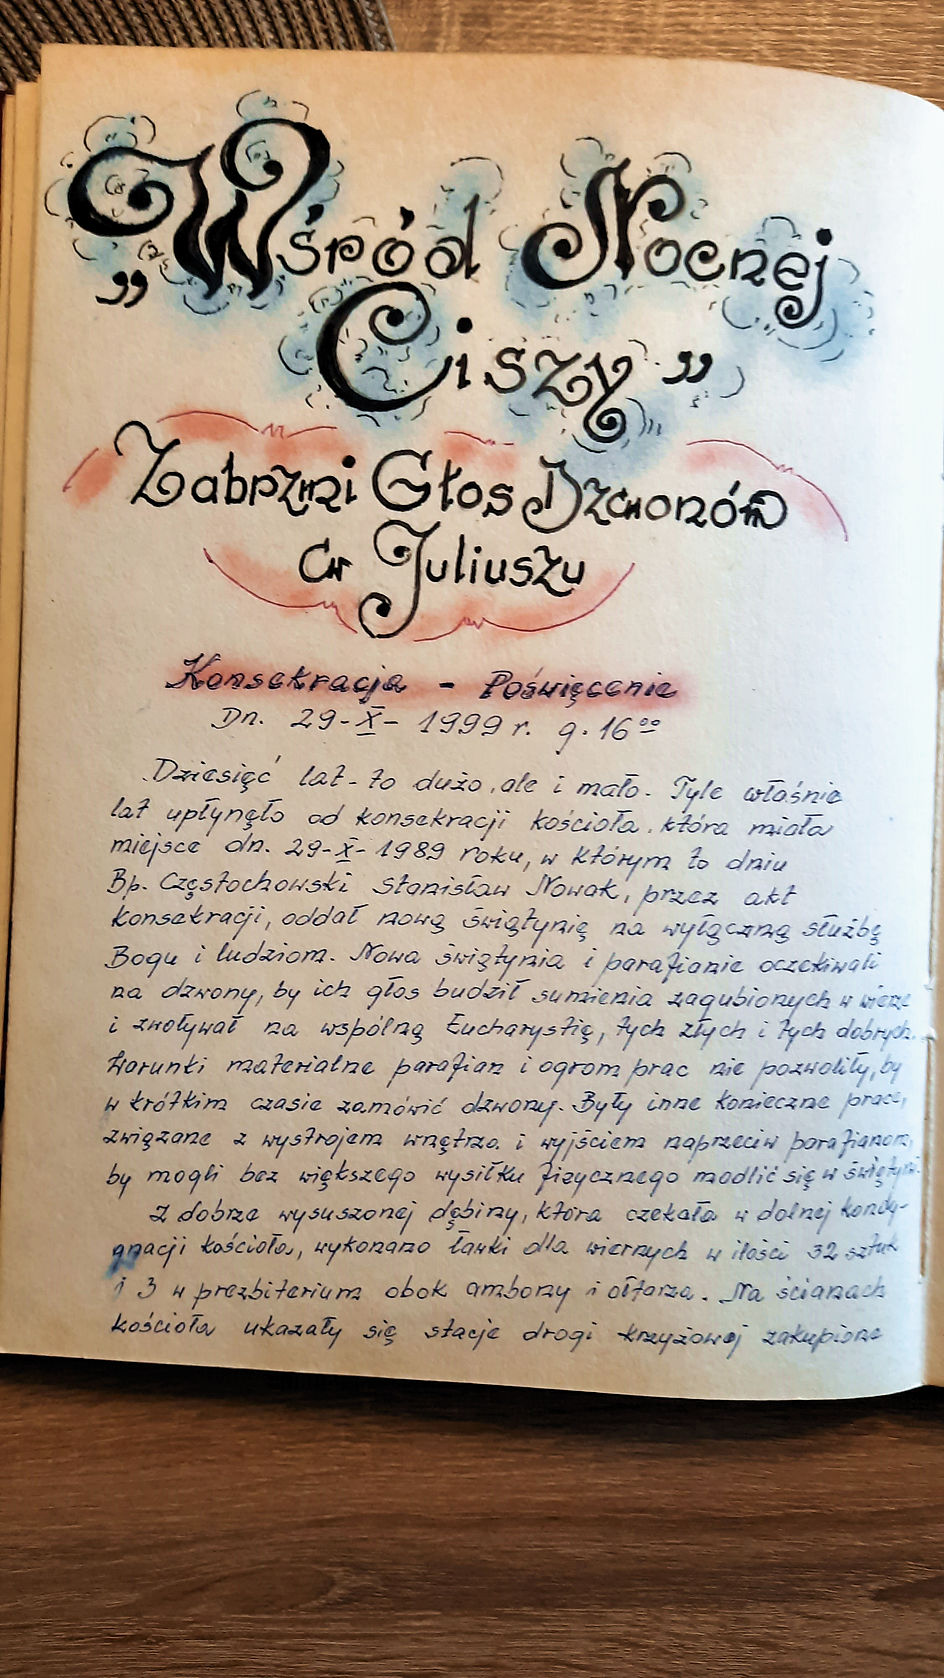 „Wśród Nocnej
Ciszy”
Zabrzmi Głos Dzwonów
w Juliuszu
Konsekracja - Poświęcenie
Dn. 29-X-1999 r. g. 16⁰⁰
Dziesięć lat - to dużo, ale i mało. Tyle właśnie
lat upłynęło od konsekracji kościoła, która miała
miejsce dn. 29-X-1989 roku, w którym to dniu
Bp. Częstochowski Stanisław Nowak, przez akt
konsekracji, oddał nową świątynię na wyłączną służbę
Bogu i ludziom. Nowa świątynia i parafianie oczekiwali
na dzwony, by ich głos budził sumienia zagubionych w wierze
i zwoływał na wspólną Eucharystię, tych złych i tych dobrych.
Warunki materialne parafian i ogrom prac nie pozwoliły, by
w krótkim czasie zamówić dzwony. Były inne konieczne prace,
związane z wystrojem wnętrza i wyjściem naprzeciw parafianom,
by mogli bez większego wysiłku fizycznego modlić się w świątyni.
Z dobrze wysuszonej dębiny, która czekała w dolnej kondy-
gnacji kościoła, wykonano ławki dla wiernych w ilości 32 sztuk
i 3 w prezbiterium obok ambony i ołtarza. Na ścianach
kościoła ukazały się stacje drogi krzyżowej zakupione